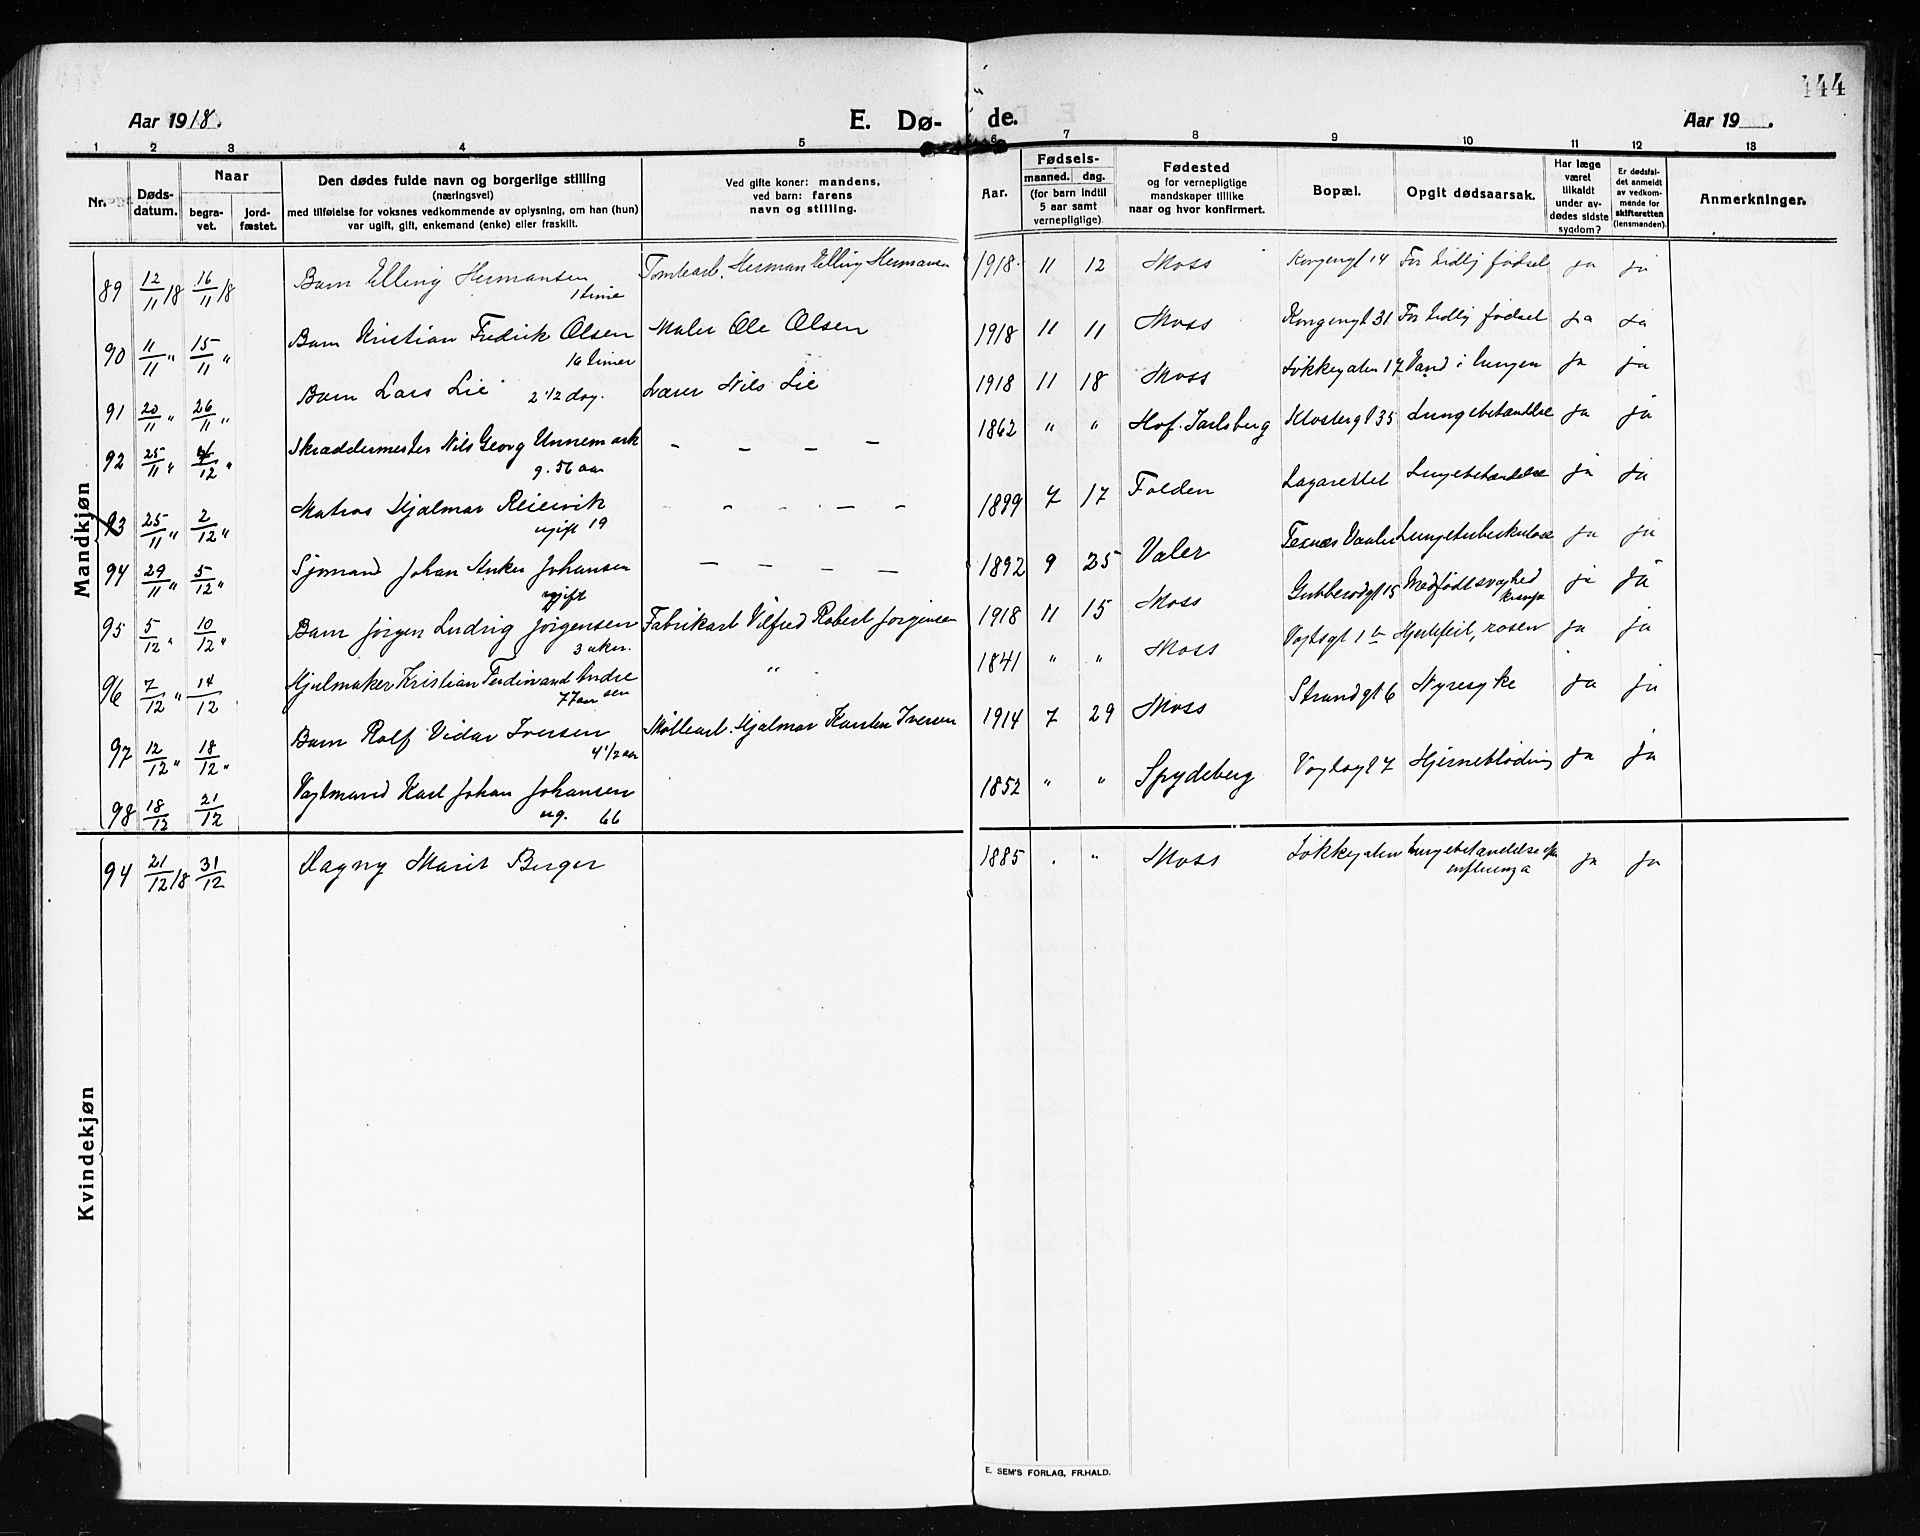 144
Aar 1918. E. Dø- de. Aar 19 .
1 2 3 4 5 6 7 8 9 10 11 12 13
Nr. Døds-datum. Naar begra-vet. jord-fæstet. Den dødes fulde navn og borgerlige stilling (næringsvei) med tilføielse for voksnes vedkommende av oplysning, om han (hun) var ugift, gift, enkemand (enke) eller fraskilt. Ved gifte koner: mandens, ved barn: farens navn og stilling. Aar. Fødsels- maaned. dag. (for barn indtil 5 aar samt vernepligtige). Fødested og for vernepligtige mandskaper tillike naar og hvor konfirmert. Bopæl. Opgit dødsaarsak. Har læge været tilkaldt under av-dødes sidste sygdom? Er dødsfal-det anmeldt av vedkom-mende for skifteretten (lensmanden). Anmerkninger.
Mandkjøn
89 12/11 18 16/11 18 Barn Elling Hermansen 1 time Tomtearb. Herman Elling Hermansen 1918 11 12 Moss Kongengt 14 For tidlig fødsel ja ja
90 11/11 " 15/11 " Barn Kristian Fredrik Olsen 16 timer Maler Ole Olsen 1918 11 11 Moss Kongengt 31 For tidlig fødsel ja ja
91 20/11 " 26/11 " Barn Lars Lie 2 1/2 dag. Lærer Nils Lie 1918 11 18 Moss Løkkegaten 17 Vand i lungen ja ja
92 25/11 " /12 " Skræddermester Nils Georg Unnemark g. 56 aar – – – – 1862 " " Hof. Jarlsberg Klostergt 35 Lungebetændelse ja ja
93 25/11 " 2/12 " Matros Hjalmar Reiersvik ugift 19 – – – – – 1899 7 17 Folden Lazarettet Lungebetændelse ja ja
94 29/11 " 5/12 " Sjømand Johan Anker Johansen ugift – – – – 1892 9 25 Valer Texnæs Vaaler Lungetuberkulose ja ja
95 5/12 " 10/12 " Barn Jørgen Ludvig Jørgensen 3 uker. Fabrikarb Vilfred Robert Jørgensen 1918 11 15 Moss Gubberodgt 15 Medfødt svaghed krampe ja ja
96 7/12 " 14/12 Hjulmaker Kristian Ferdinand Andresen 77 aar " 1841 " " Moss Vogtsgt 1 b Hjertefeil, rosen ja ja
97 12/12 " 18/12 " Barn Rolf Vidar Iversen 4 1/2 aar Møllearb. Hjalmar Karsten Iversen 1914 7 29 Moss Strandgt 6 Nyresyke ja ja
98 18/12 21/12 Vogtmand Karl Johan Johansen ug. 66 1852 " " Spydeberg Vogtsgt 7 Hjerneblødning ja ja
Kvindekjøn
94 21/12 18 31/12 Dagny Marit Berger 1885 . " Moss Løkkegaten Lungebetændelse influenza ja ja
E. SEM'S FORLAG, FR.HALD.